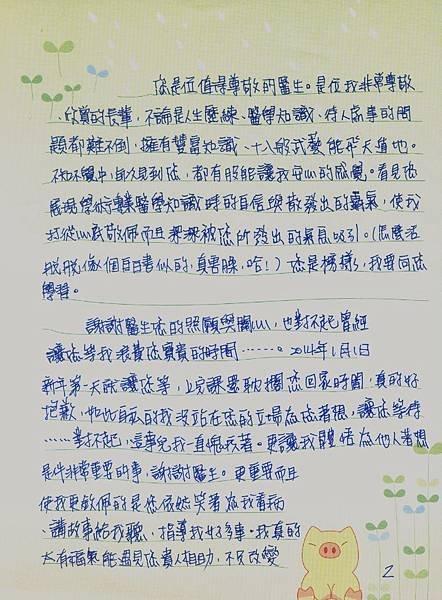 您是位值得尊敬的醫生。是位我非常尊敬
、欣賞的長輩,不論是人生歷練、醫學知識、待人處事的問
題都難不倒,擁有豐富知識、十八般武藝能飛天遁地。
不知不覺中,每次見到您,都有股能讓我安心的感覺。看見您
展現學術專業醫學知識時的自信與散發出的霸氣,使我
打從心底敬佩而且深深被您所發出的氣息吸引。(怎麼活
脫脫像個自白書似的,真害臊,哈!)您是榜樣,我要向您
學習。
謝謝醫生您的照顧與關心,也對不起曾經
讓您等我浪費您寶貴的時間……。2014年1月1日
新年第一天就讓您等,上完課還耽擱您回家時間,真的好
抱歉,如此自私的我沒站在您的立場為您著想,讓您等待
……對不起,這事兒我一直很疚著。更讓我體悟為他人著想
是件非常重要的事,謝謝醫生。更重要而且
使我更敬佩的是您依然笑著為我看病
、講故事給我聽,指導我好多事。我真的
太有福氣能遇見您貴人相助,不只改變
2